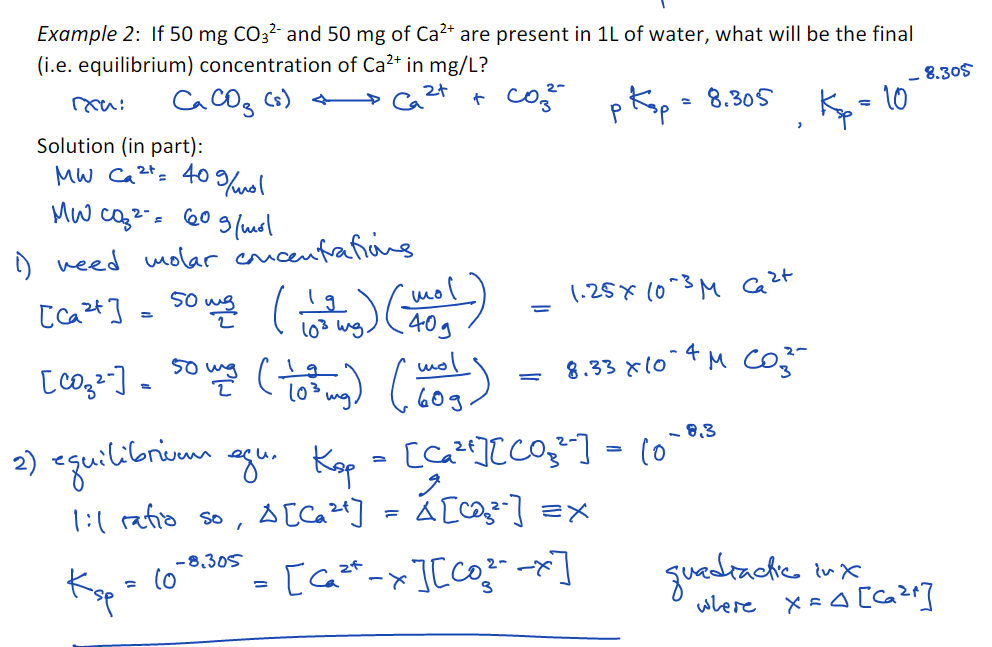 Example 2: If 50 mg CO₃²⁻ and 50 mg of Ca²⁺ are present in 1L of water, what will be the final
(i.e. equilibrium) concentration of Ca²⁺ in mg/L?
rxn: CaCO₃ (s) ⟷ Ca²⁺ + CO₃²⁻ pKsp = 8.305 , Ksp = 10^-8.305
Solution (in part):
MW Ca²⁺ = 40 g/mol
MW CO₃²⁻ = 60 g/mol
1) need molar concentrations
[Ca²⁺] = 50 mg/L (1 g/10³ mg) (mol/40g) = 1.25 x 10⁻³ M Ca²⁺
[CO₃²⁻] = 50 mg/L (1 g/10³ mg) (mol/60g) = 8.33 x 10⁻⁴ M CO₃²⁻
2) equilibrium equ. Ksp = [Ca²⁺][CO₃²⁻] = 10^-8.3
1:1 ratio so, Δ[Ca²⁺] = Δ[CO₃²⁻] ≡ x
Ksp = 10^-8.305 = [Ca²⁺ - x][CO₃²⁻ - x] quadractic in x
where x = Δ[Ca²⁺]